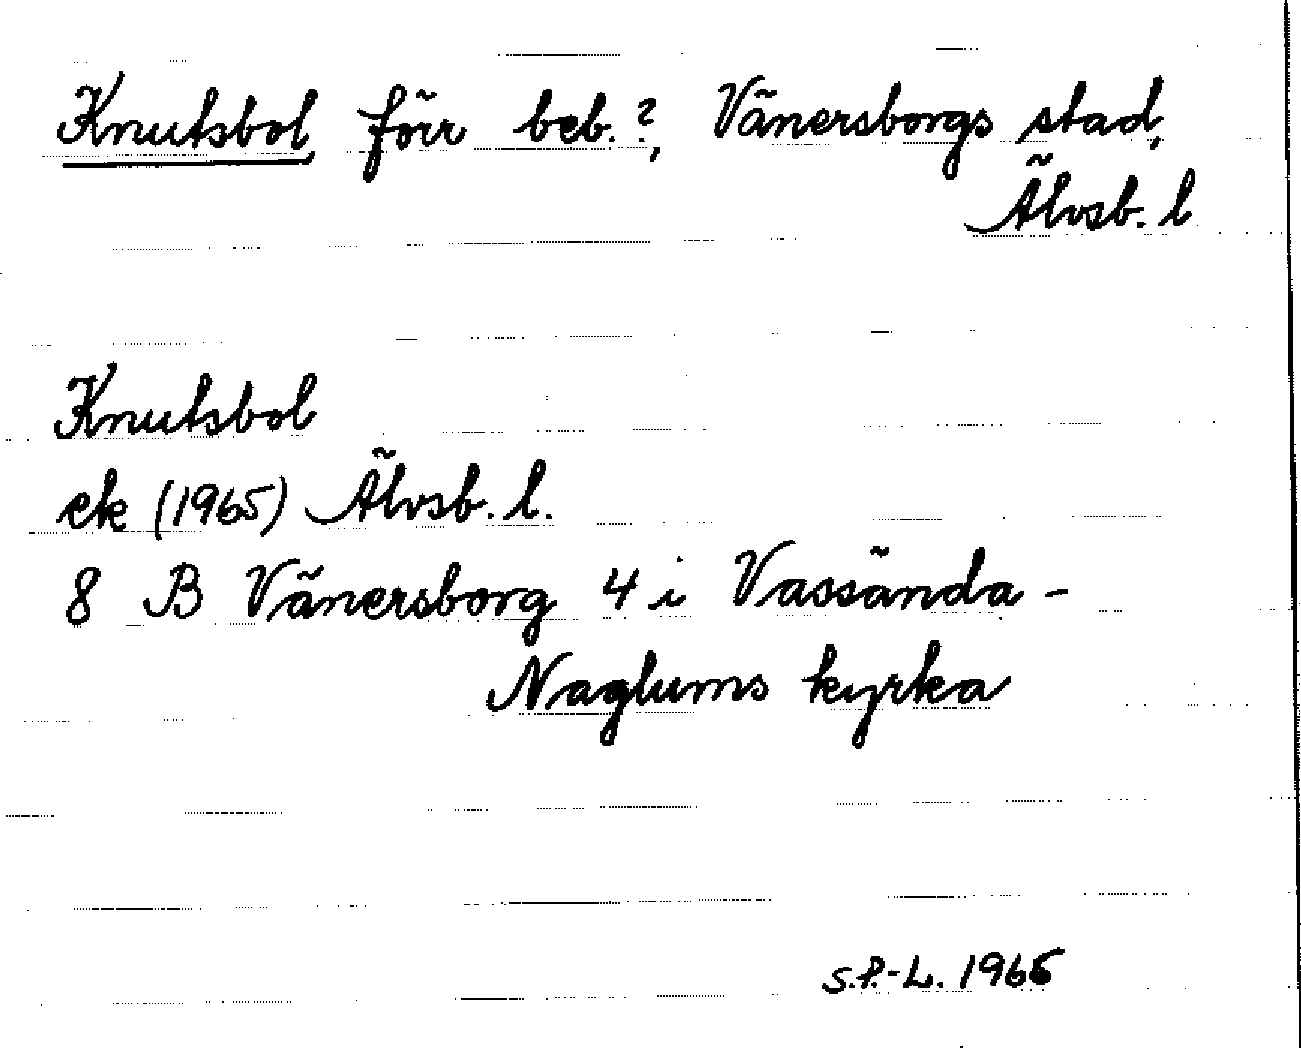 Knutsbol, förr beb.?, Vänersborgs stad,
Älvsb. l
Knutsbol
ek (1965) Älvsb. l.
8 B Vänersborg 4 i Vassända-
Naglums kyrka
S.P.-L. 1965